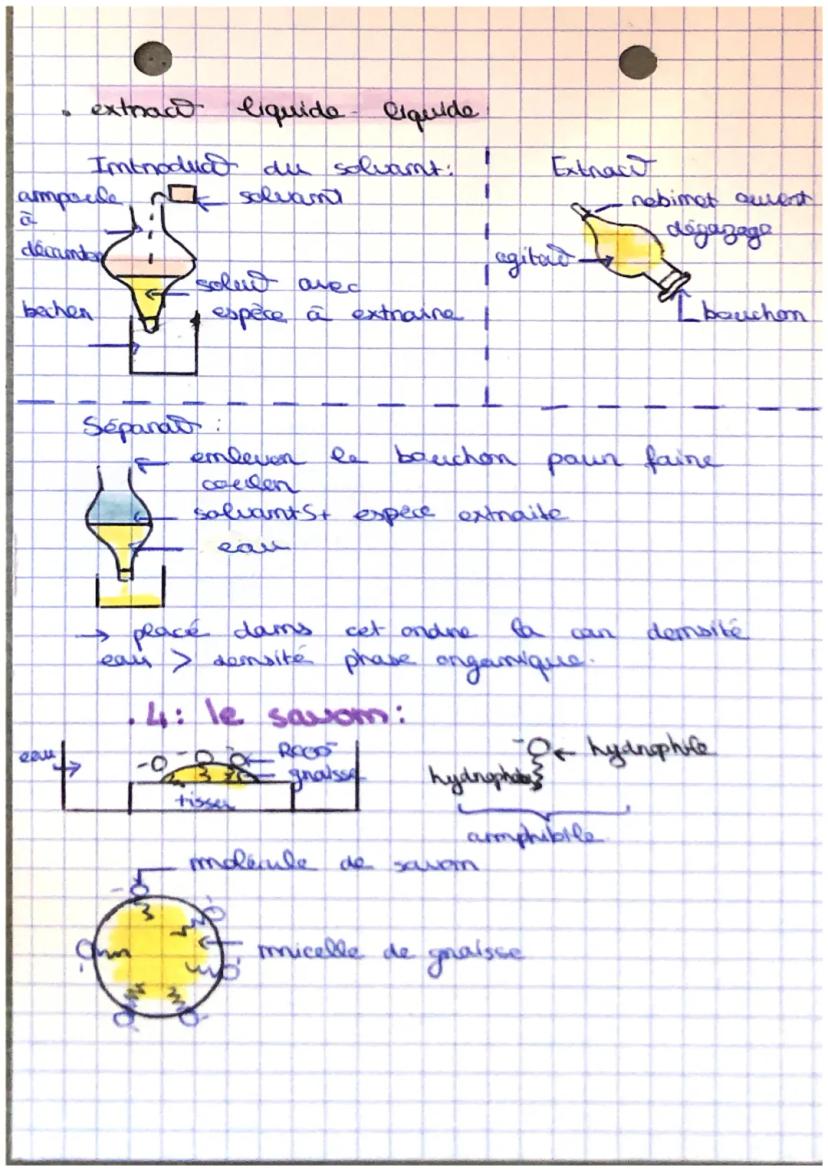 . extract° liquide - liquide
Introduct° du solvant:
solvant
ampoule
à
décanter
solut° avec
espèce à extraire
becher
Extract°
robinet ouvert
dégazage
agitat°
bouchon
Séparat° :
enlever le bouchon pour faire
couler
solvant S+ espèce extraite
eau
→ placé dans cet ordre là car densité
eau > densité phase organique.
.4: le savon:
eau
RCOO⁻
graisse
tissu
hydrophile
hydrophobe
amphibile
molécule de savon
micelle de graisse